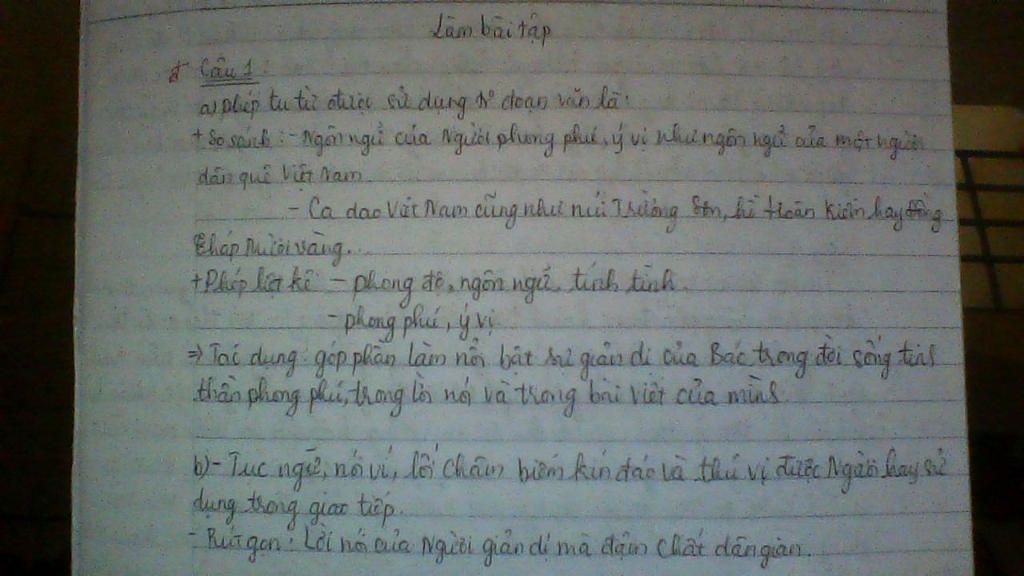 Làm bài tập
Câu 1:
a) phép tu từ được sử dụng tr° đoạn văn là:
+ So sánh: - Ngôn ngữ của Người phong phú, ý vị như ngôn ngữ của một người
dân quê Việt Nam
- Ca dao Việt Nam cũng như núi Trường Sơn, hồ Hoàn Kiếm hay đồng
tháp Mười vàng..
+ Phép liệt kê - phong độ, ngôn ngữ, tính tình.
- phong phú, ý vị
=> Tác dụng: góp phần làm nổi bật sự giản dị của Bác trong đời sống tinh
thần phong phú, trong lời nói và trong bài viết của mình
b) - Tục ngữ, nói ví, lối châm biếm kín đáo và thú vị được Người hay sử
dụng trong giao tiếp.
- Rút gọn: Lời nói của Người giản dị mà đậm chất dân gian.